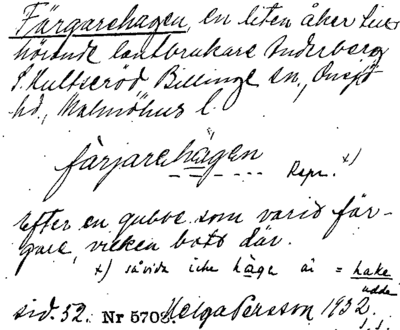 Färgarehagen, en liten åker till-
hörande lantbrukare Anderberg
S. Hultseröd Billinge sn., Onsjö
hd., Malmöhus l.
färjarehägen Repr. x)
Efter en gubbe som varit fär-
gare, vilken bott där.
x) såvida icke häge är = hake
udde
sid. 52. Nr 5703. Helga Persson 1932.